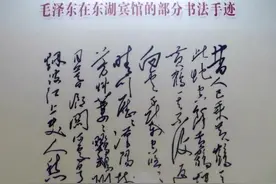 毛泽东在东湖宾馆的部分书法手迹
昔人已乘黄鹤去
此地空余黄鹤楼
黄鹤一去不复返
白云千载空悠悠
晴川历历汉阳树
芳草萋萋鹦鹉洲
日暮乡关何处是
烟波江上使人愁